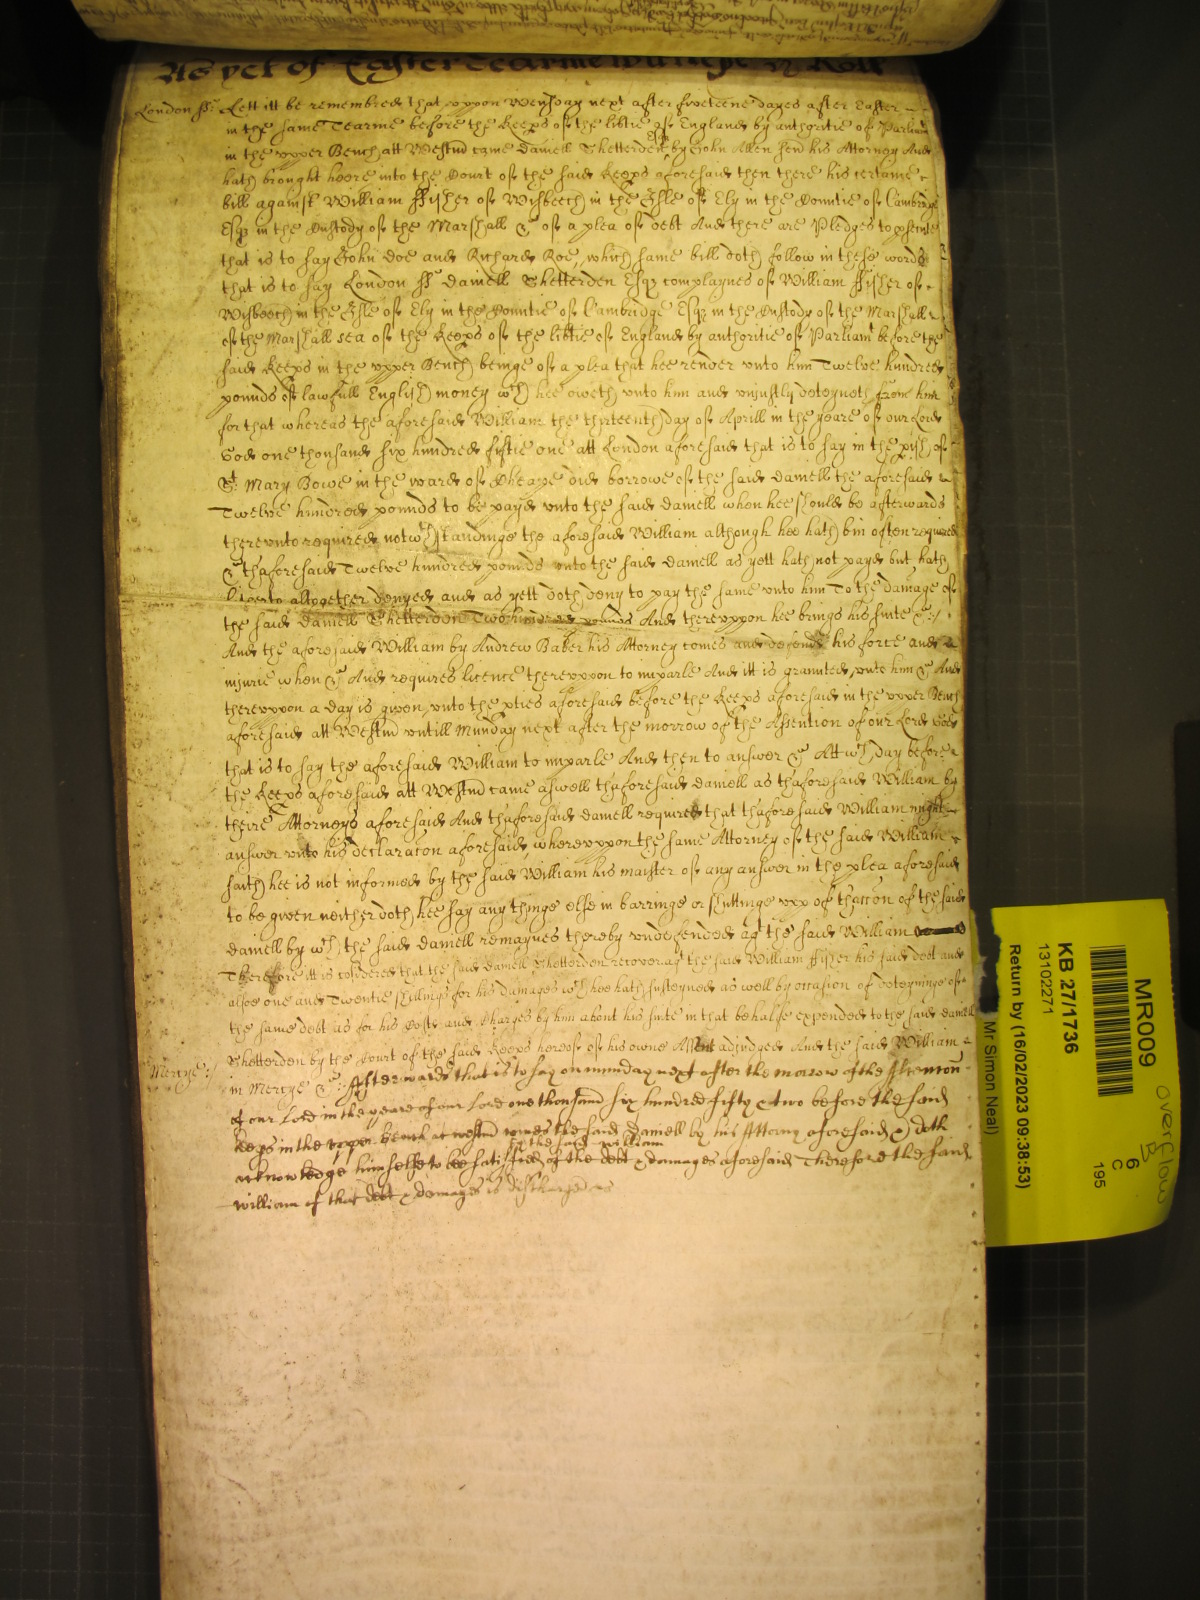 As yet of Easter Tearme Wittnesse H Rolle
London ss: Lett itt be remembred that vppon Wensday next after fiveteene dayes after Easter
in the same Tearme before the Keeps of the libtie of England by authoritie of Parliam
in the vpper Bench att Westm came Daniell Shetterden Esqz by John Allen sen his Attorney And
hath brought heere into the Court of the said Keeps aforesaid then there his certaine
bill against William ffisher of Wisbeech in the Isle of Ely in the Countie of Cambridge
Esqz in the Custody of the Marshall &c of a plea of debt And there are Pledges to psecute
that is to say John Doe and Richard Roe, which same bill doth follow in these words
that is to say London ss Daniell Shetterden Esqz complaynes of William ffisher of
Wisbeech in the Isle of Ely in the Countie of Cambridge Esqz in the Custody of the Marshall
of the Marshallsea of the Keeps of the libtie of England by authoritie of Parliamt before the
said Keeps in the vpper Bench beinge of a plea that hee render vnto him Twelve hundred
pounds of lawfull English money wch hee oweth vnto him and vniustly deteyneth from him
for that whereas the aforesaid William the thirteenth day of Aprill in the yeare of our Lord
God one thousand six hundred fiftie one att London aforesaid that is to say in the pish of
St Mary Bowe in the ward of Cheape did borrowe of the said Daniell the aforesaid
Twelve hundred pounds to be payd vnto the said Daniell when hee should be afterwards
therevnto required notwthstandinge the aforesaid William although hee hath bin often required
&c thaforesaid Twelve hundred pounds vnto the said Daniell as yett hath not payd but hath
hitherto altogether denyed and as yett doth deny to pay the same vnto him To the damage of
the said Daniell Shetterden Two hundred pounds And therevppon hee brings his suite &c:/
And the aforesaid William by Andrew Baker his Attorney comes and defends his force and
iniurie when &c And requires licence therevppon to imparle And itt is graunted vnto him &c And
therevppon a day is given vnto the pties aforesaid before the Keeps aforesaid in the vpper Bench
aforesaid att Westm vntill Munday next after the morrow of the Assention of our Lord God
that is to say the aforesaid William to imparle And then to answer &c Att wch day before
the Keeps aforesaid att Westm came aswell thaforesaid Daniell as thaforesaid William by
theire Attorneys aforesaid And thaforesaid Daniell required that thaforesaid William might
answer vnto his declaracon aforesaid, wherevppon the same Attorney of the said William
saith hee is not informed by the said William his maister of any answer in the plea aforesaid
to be given neither doth hee say any thinge else in barringe or shuttinge vpp of thaccon of the said
Daniell by wch the said Daniell remaynes thereby vndefended agt the said William
Therefore itt is considered that the said Daniell Shetterden recover agt the said William ffisher his said debt and
alsoe one and Twentie shillings for his damages wch hee hath susteyned as well by occasion of deteyninge of
the same debt as for his Costs and Charges by him about his suite in that behalfe expended to the said Daniell
Shetterden by the Court of the said Keeps hereof of his owne Assent adiudged And the said William
Mercye:/
in Mercye &c:/ Afterwards that is to say on munday next after the morrow of the Assention
of our Lord in the yeare of our Lord one thousand six hundred fifty & two before the said
Keeps in the vpper bench at westm comes the said Daniell by his Attorny aforesaid & doth
acknowledge himselfe to bee satisfied by the said william of the debt & damages aforesaid Therefore the said
william of that debt & damages is discharged
MR009
KB 27/1736
13102271
Return by (16/02/2023 09:38:53)
Mr Simon Neal)
6
C
195
overflow
B